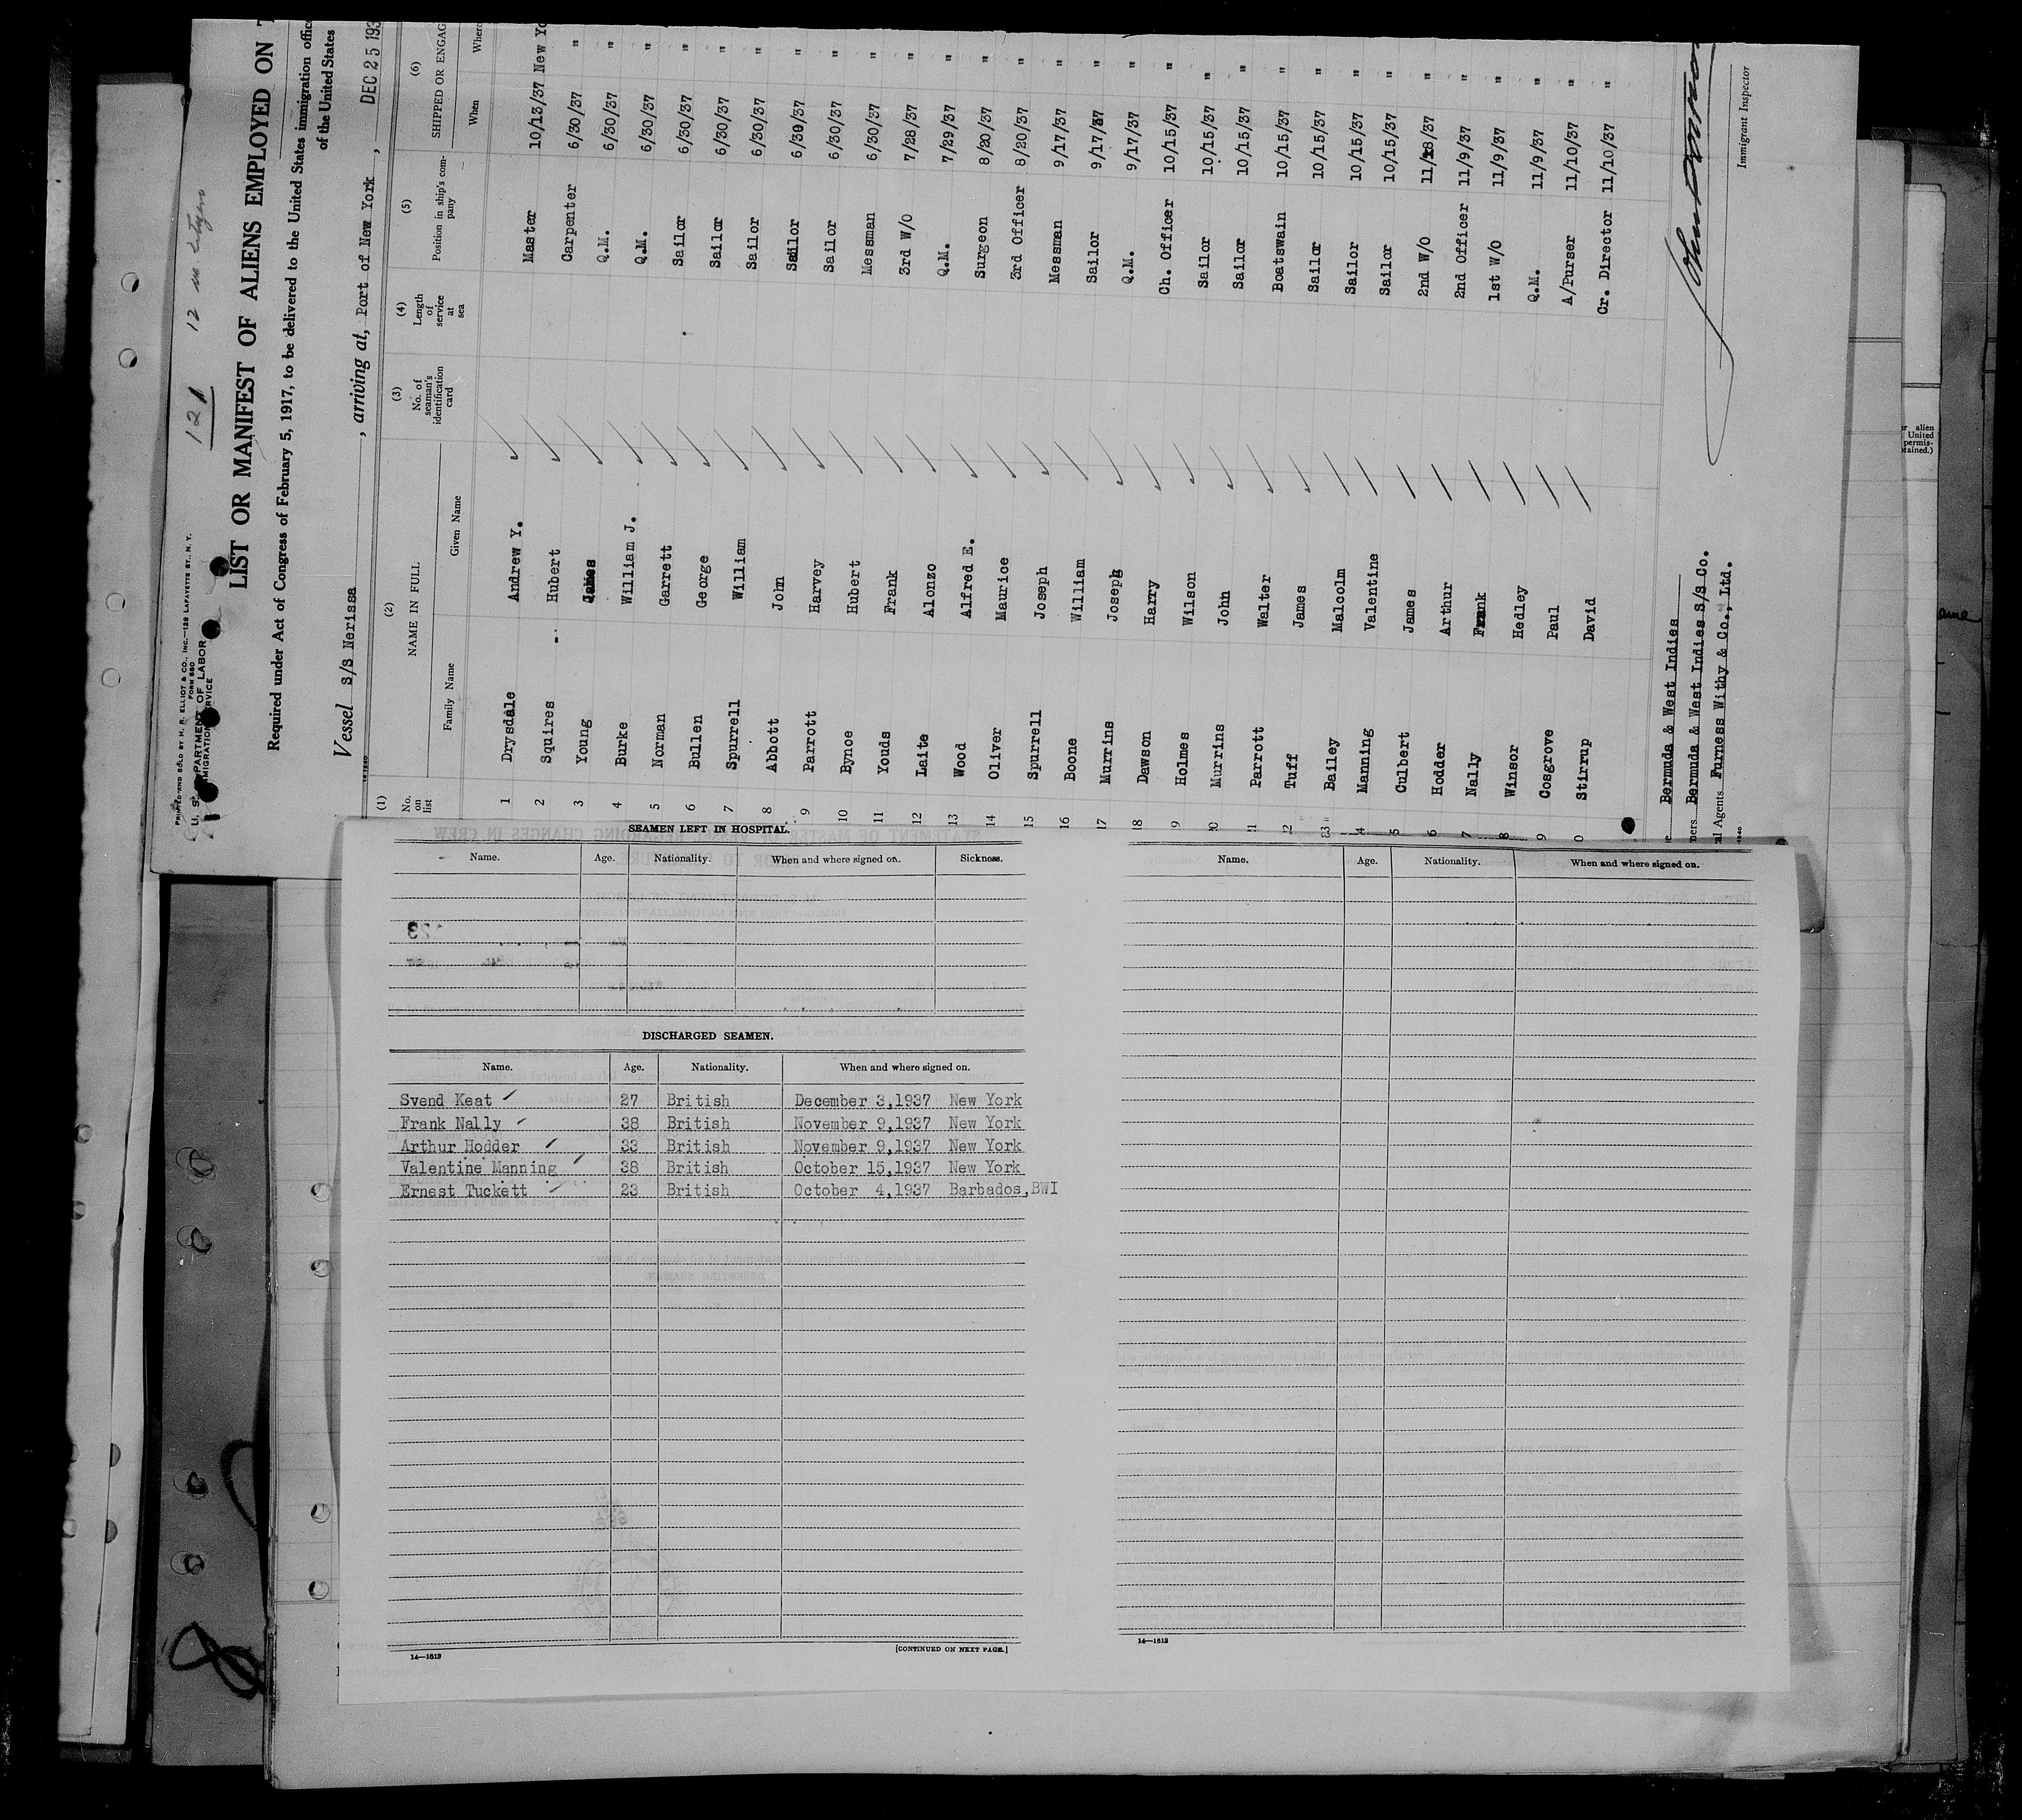 121 12 in
PRINTED AND SOLD BY H. R. ELLIOT & CO., INC.—129 LAFAYETTE ST., N. Y.
FORM 680
U. S. DEPARTMENT OF LABOR
IMMIGRATION SERVICE
LIST OR MANIFEST OF ALIENS EMPLOYED ON
Required under Act of Congress of February 5, 1917, to be delivered to the United States immigration
of the United States
Vessel S/S Nerissa , arriving at, Port of New York , DEC 25 193
(1) (2) (3) (4) (5) (6)
No. on list NAME IN FULL No. of seaman's identification card Length of service at sea Position in ship's company SHIPPED OR ENGAG
Family Name Given Name When Where
1 Drysdale Andrew Y. Master 10/13/37 New Yo
2 Squires Hubert Carpenter 6/30/37 "
3 Young James Q.M. 6/30/37 "
4 Burke William J. Q.M. 6/30/37 "
5 Norman Garrett Sailor 6/30/37 "
6 Bullen George Sailor 6/30/37 "
7 Spurrell William Sailor 6/30/37 "
8 Abbott John Sailor 6/30/37 "
9 Parrott Harvey Sailor 6/30/37 "
10 Bynoe Hubert Messman 6/30/37 "
11 Youds Frank 3rd W/O 7/28/37 "
12 Laite Alonzo Q.M. 7/29/37 "
13 Wood Alfred E. Surgeon 8/20/37 "
14 Oliver Maurice 3rd Officer 8/20/37 "
15 Spurrell Joseph Messman 9/17/37 "
16 Boone William Sailor 9/17/37 "
17 Murrins Joseph Q.M. 9/17/37 "
18 Dawson Harry Ch. Officer 10/15/37 "
9 Holmes Wilson Sailor 10/15/37 "
0 Murrins John Sailor 10/15/37 "
1 Parrott Walter Boatswain 10/15/37 "
2 Tuff James Sailor 10/15/37 "
3 Bailey Malcolm Sailor 10/15/37 "
4 Manning Valentine Sailor 10/15/37 "
5 Culbert James 2nd W/O 11/18/37 "
6 Hodder Arthur 2nd Officer 11/9/37 "
7 Nally Frank 1st W/O 11/9/37 "
8 Winsor Hedley Q.M. 11/9/37 "
9 Cosgrove Paul A/Purser 11/10/37 "
0 Stirrup David Cr. Director 11/10/37 "
Bermuda & West Indies
ners Bermuda & West Indies S/S Co.
al Agents Furness Withy & Co., Ltd.
Immigrant Inspector
r alien
United
permis-
tained.)
ame
SEAMEN LEFT IN HOSPITAL.
Name. Age. Nationality. When and where signed on. Sickness.
DISCHARGED SEAMEN.
Name. Age. Nationality. When and where signed on.
Svend Keat 27 British December 3,1937 New York
Frank Nally 38 British November 9,1937 New York
Arthur Hodder 33 British November 9,1937 New York
Valentine Manning 38 British October 15,1937 New York
Ernest Tuckett 23 British October 4,1937 Barbados,BWI
14—1613 [CONTINUED ON NEXT PAGE.]
Name. Age. Nationality. When and where signed on.
14—1613